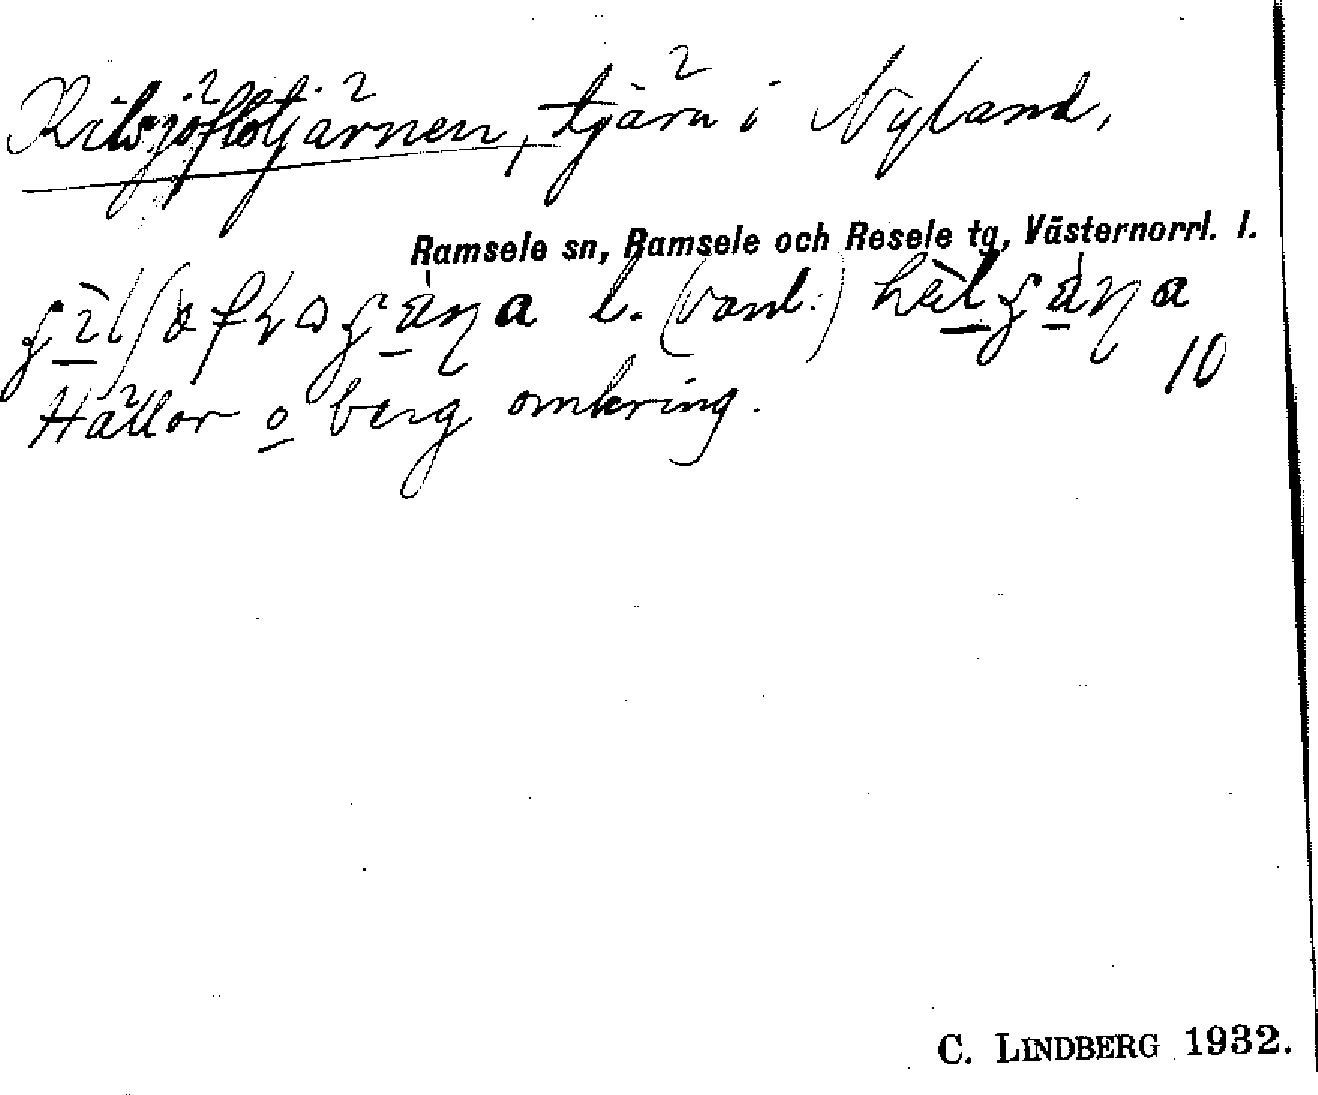 Kilsjöflotjärnen, tjärn i Nyland,
Ramsele sn, Ramsele och Resele tg, Västernorrl. l.
l. (vanl.:)
10
Hällor o berg omkring.
C. LINDBERG 1932.